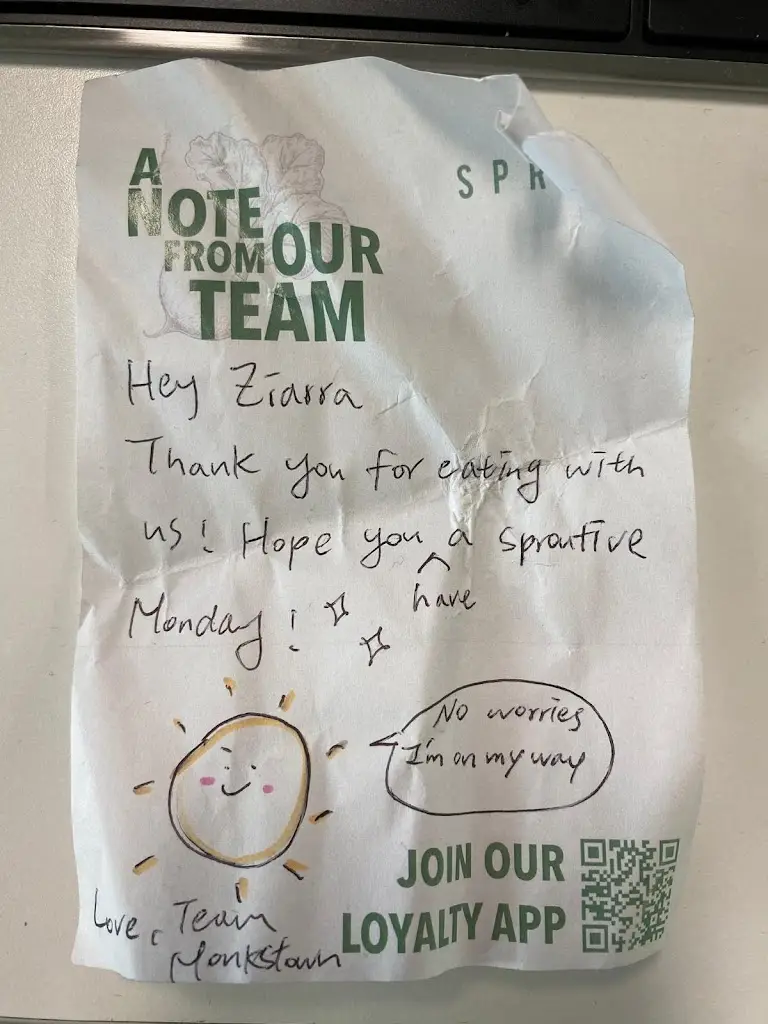 A
NOTE
FROM OUR
TEAM
SPR
Hey Ziarra
Thank you for eating with
us! Hope you a sproutive
have
Monday!
No worries
I'm on my way
JOIN OUR
LOYALTY APP
Love, Team
Monkstown